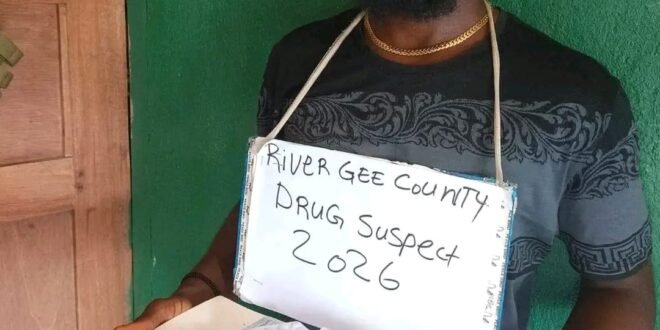 RIVER GEE COUNTY
DRUG Suspect
2026